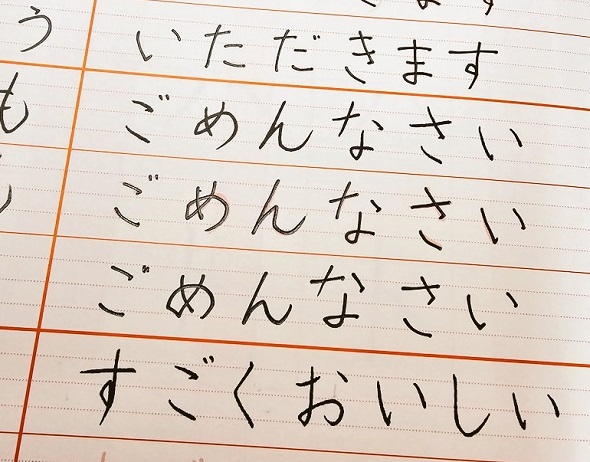 いただきます
ごめんなさい
ごめんなさい
ごめんなさい
すごくおいしい